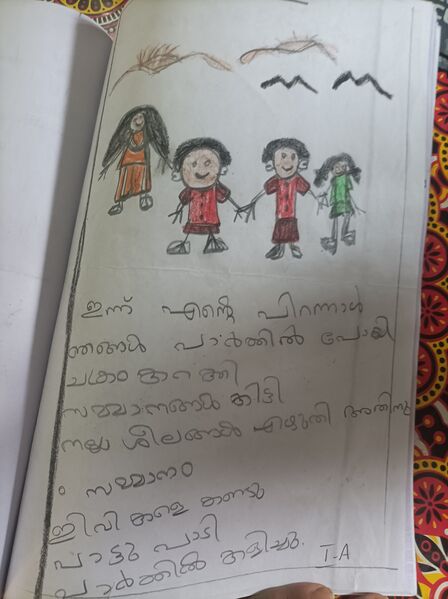 ഇന്ന് എന്റെ പിറന്നാൾ
ഞങ്ങൾ പാർക്കിൽ പോയി
സമ്മാനങ്ങൾ കിട്ടി
നല്ല ശീലങ്ങൾ എഴുതി അതിനു
സമ്മാനം
ജീവികളെ കണ്ടു
പാട്ടു പാടി
പാർക്കിൽ കളിച്ചു. I-A